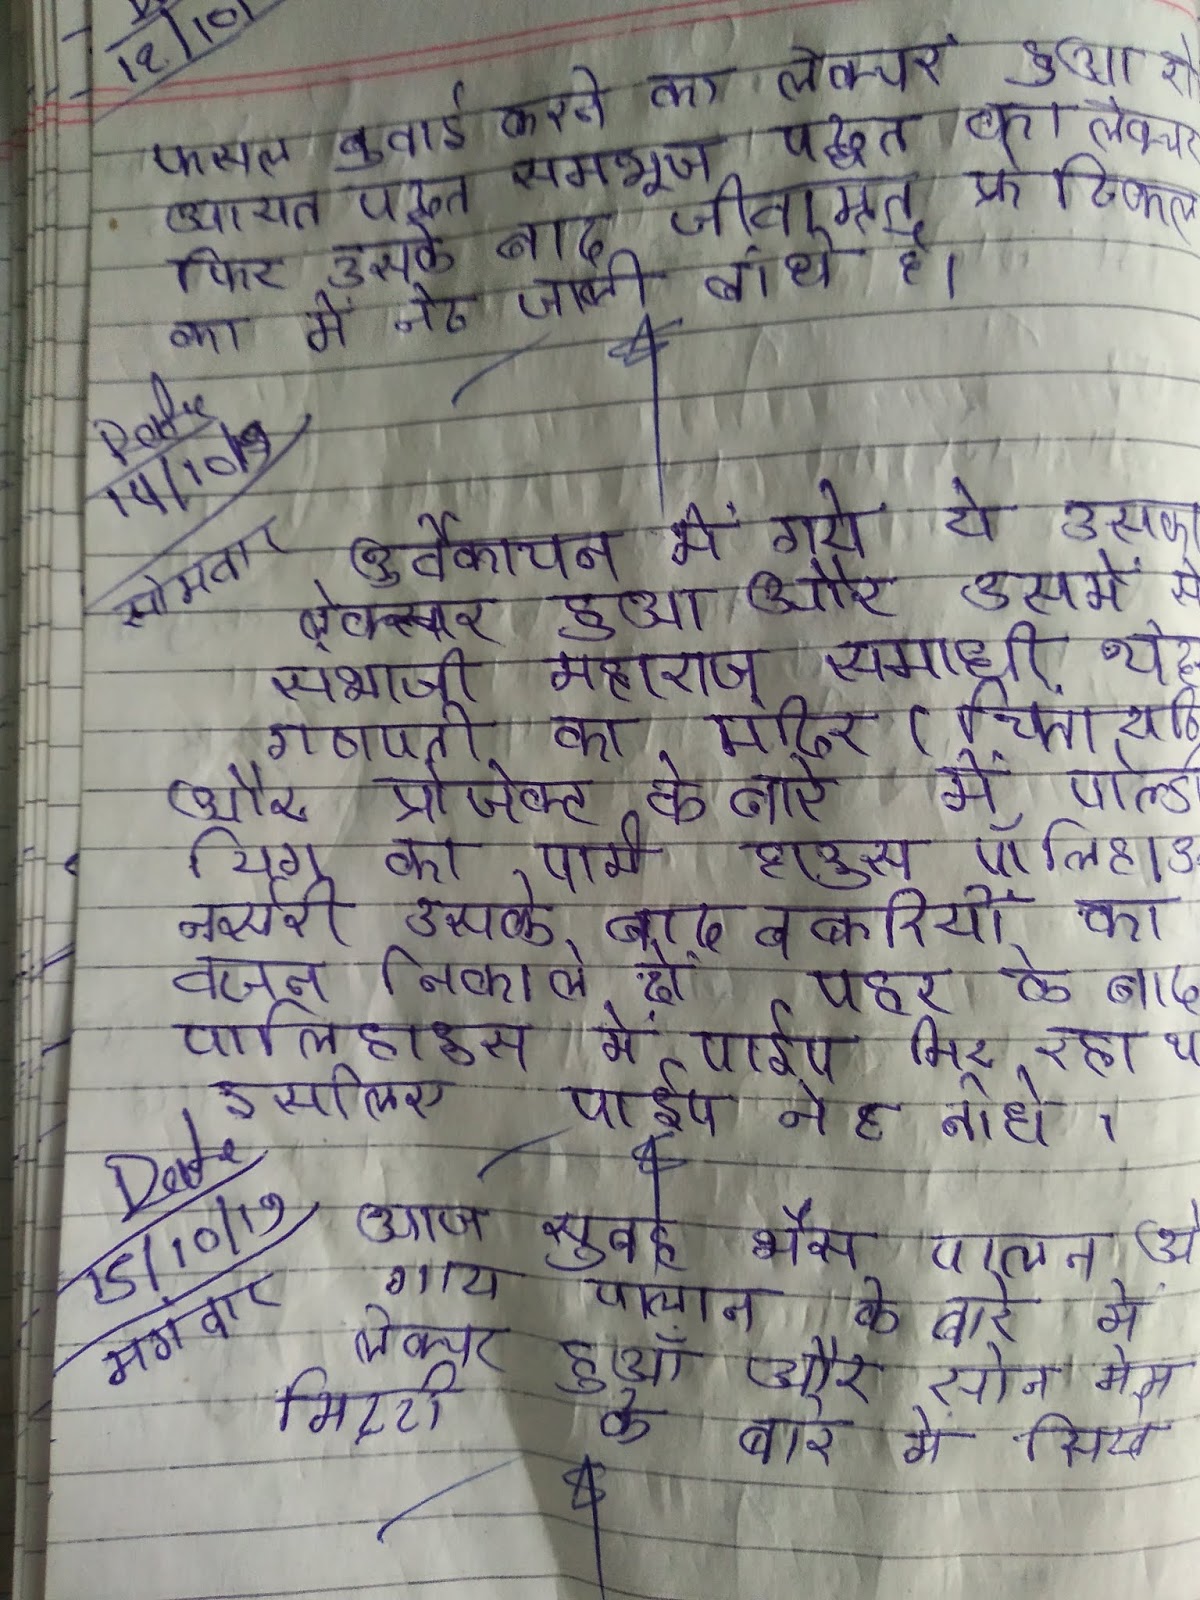 12/10/
फसल बुवाई करने का लेक्चर हुआ
आयत पद्धत समभूज पद्धत का लेक्चर
फिर उसके बाद जीवामृत प्रेटिकल
का में नेट जाली बांधे है।
Date
14/10/19
सोमवार
उर्वेकाचन में गये थे उसका
लेक्चर हुआ और उसमें से
संभाजी महाराज समाधी
गणपती का मंदिर (
और प्रोजेक्ट के बारे में
का फार्म हाउस
नर्सरी उसके बाद बकरियों का
वजन निकाले दो पहर के बाद
पालिहाउस में पाईप गिर रहा
इसलिए पाईप नेट बांधे।
Date
15/10/19
मगंवार
आज सुबह भैंस पालन
गाय पालान के बारे में
लेक्चर हुआँ और
मिट्टी के बारे में सिखे